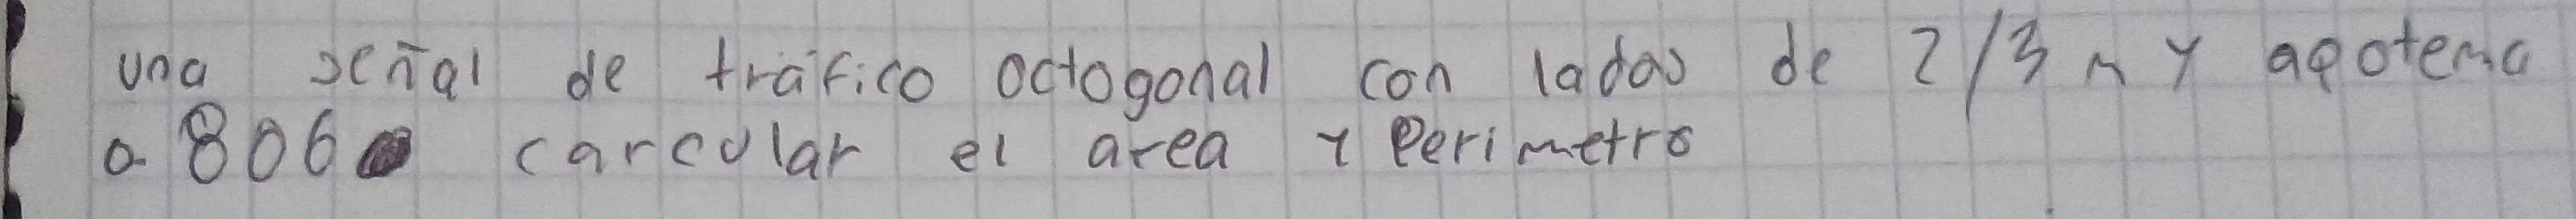 una señal de tráfico octogonal con lados de 2/3 m y apotema
0.806 carcular el area y Perimetro